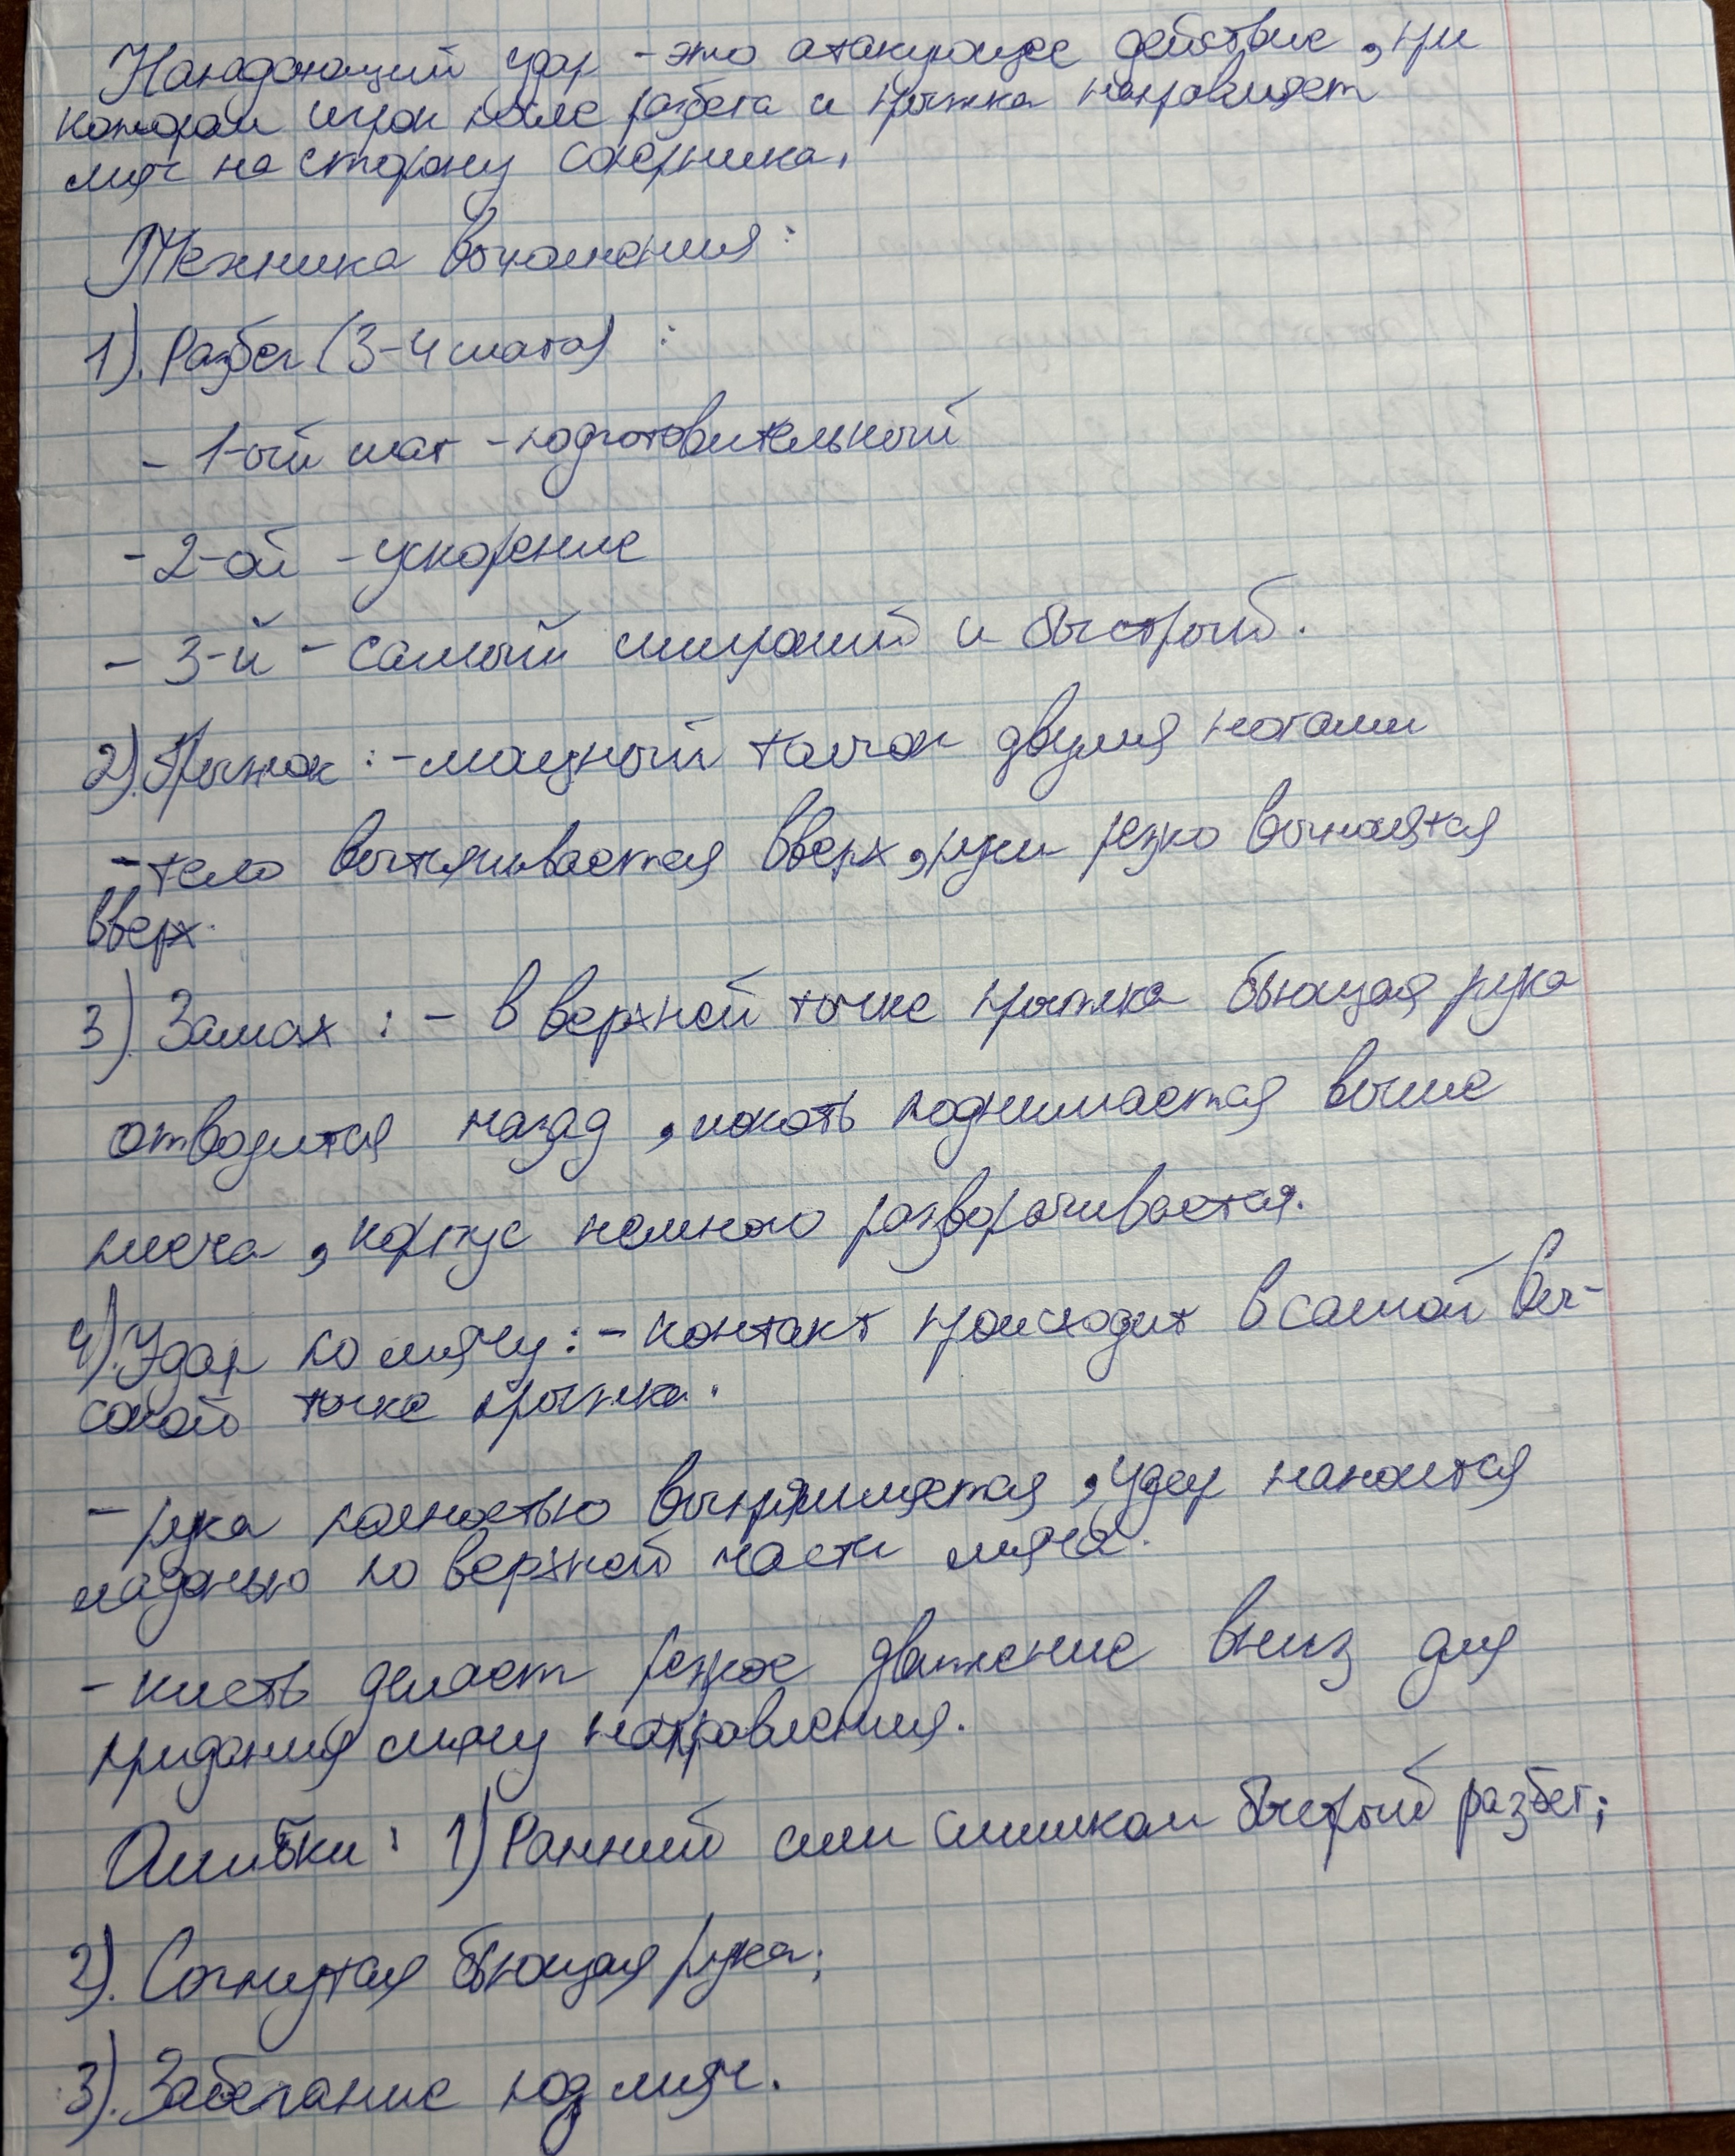 Нападающий удар - это атакующее действие, при
котором игрок после разбега и прыжка направляет
мяч на сторону соперника.
Техника выполнения:
1). Разбег (3-4 шага) :
- 1-ый шаг - подготовительный
- 2-ой - ускорение
- 3-й - самый широкий и быстрый.
2). Прыжок : - мощный толчок двумя ногами
- тело вытягивается вверх, руки резко выносятся
вверх.
3). Замах : - в верхней точке прыжка бьющая рука
отводится назад, локоть поднимается выше
плеча, корпус немного разворачивается.
4). Удар по мячу : - контакт происходит в самой вы-
сокой точке прыжка.
- рука полностью выпрямляется, удар наносится
ладонью по верхней части мяча.
- кисть делает резкое движение вниз для
придания мячу направления.
Ошибки : 1) Ранний или слишком быстрый разбег;
2). Согнутая бьющая рука;
3). Забегание под мяч.